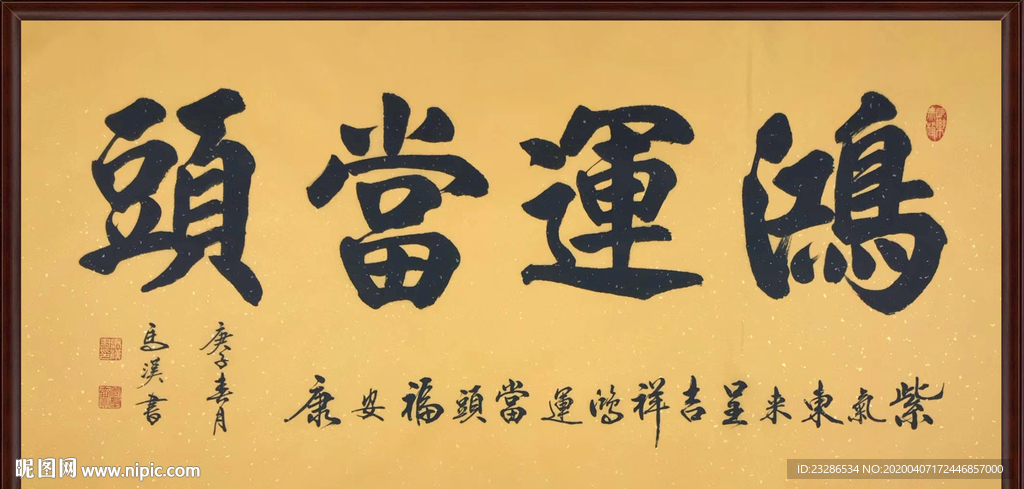 鴻運當頭
紫氣東来呈吉祥鴻運當頭福安康
庚子春月
馬漢書
昵图网 www.nipic.com
ID:23286534 NO:20200407172446857000